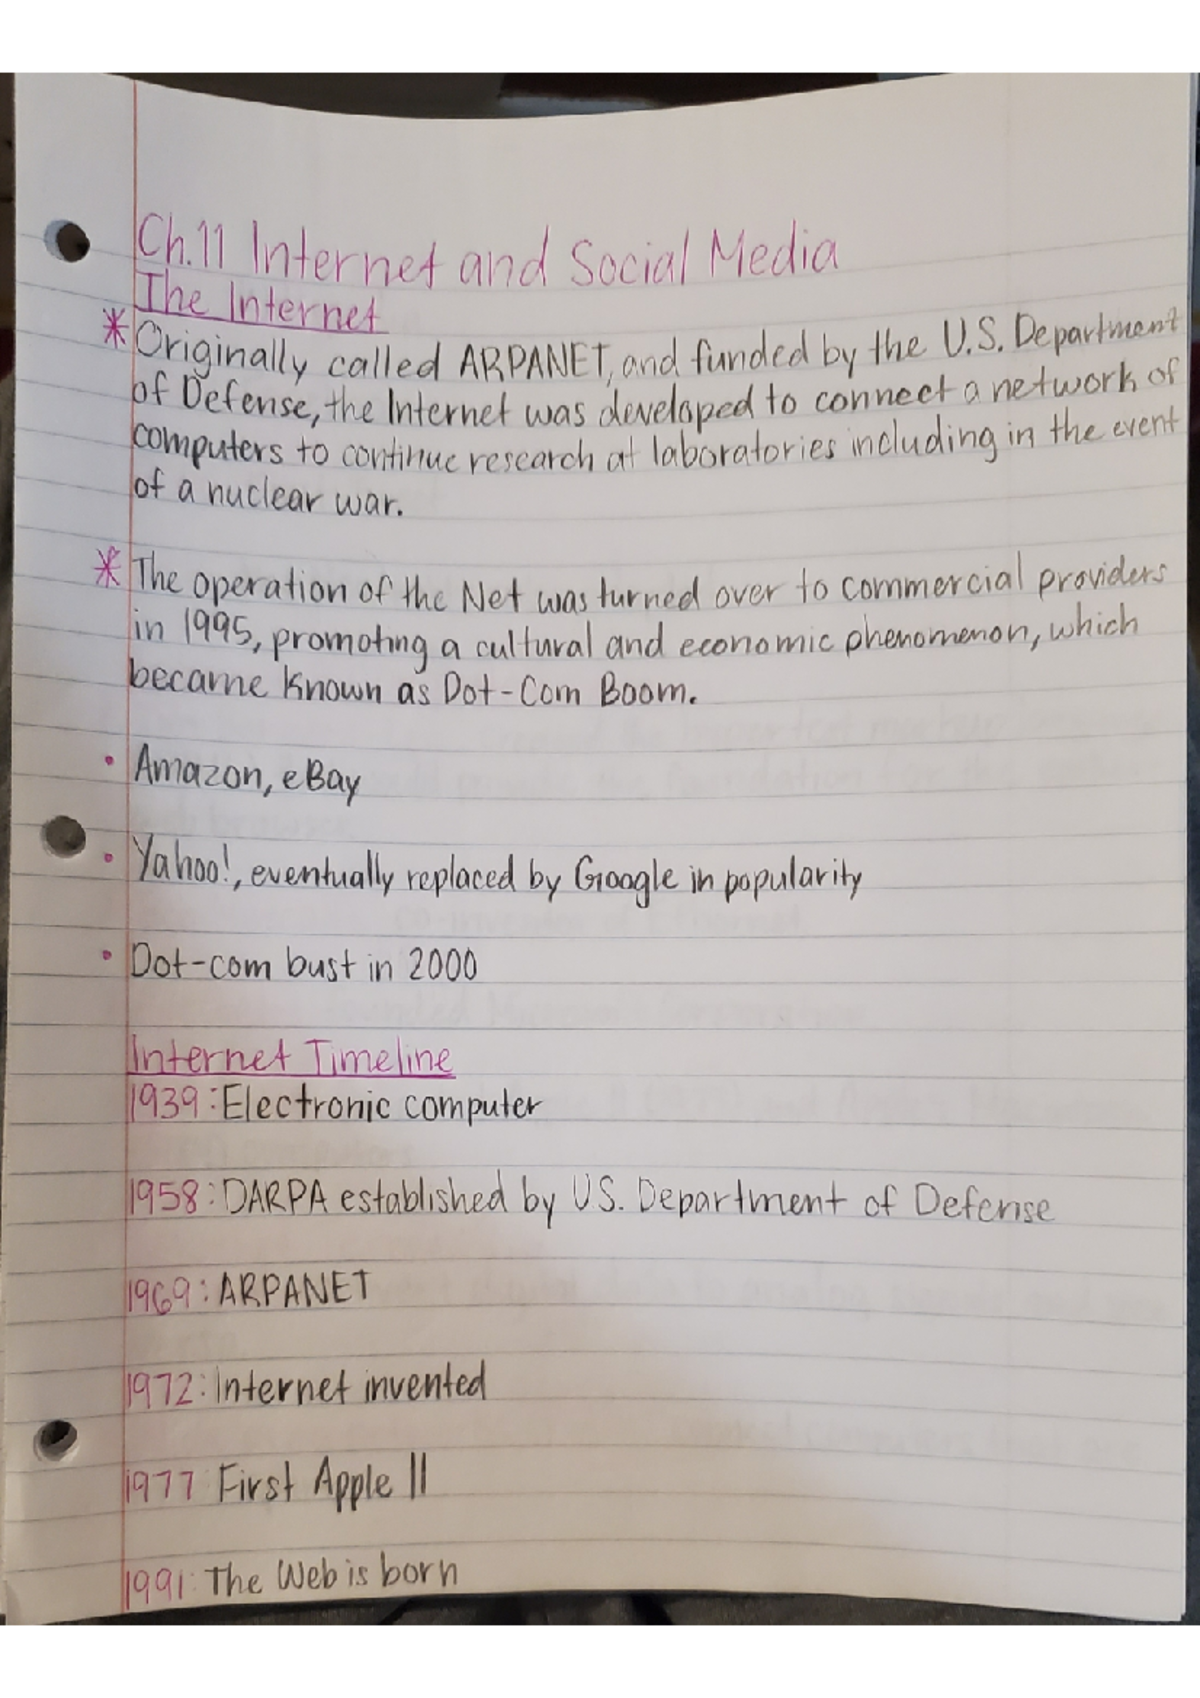 Ch.11 Internet and Social Media
The Internet
* Originally called ARPANET, and funded by the U.S. Department
of Defense, the Internet was developed to connect a network of
computers to continue research at laboratories including in the event
of a nuclear war.
* The operation of the Net was turned over to commercial providers
in 1995, promoting a cultural and economic phenomenon, which
became known as Dot-Com Boom.
• Amazon, eBay
• Yahoo!, eventually replaced by Google in popularity
• Dot-com bust in 2000
Internet Timeline
1939: Electronic computer
1958: DARPA established by U.S. Department of Defense
1969: ARPANET
1972: Internet invented
1977 First Apple II
1991: The Web is born